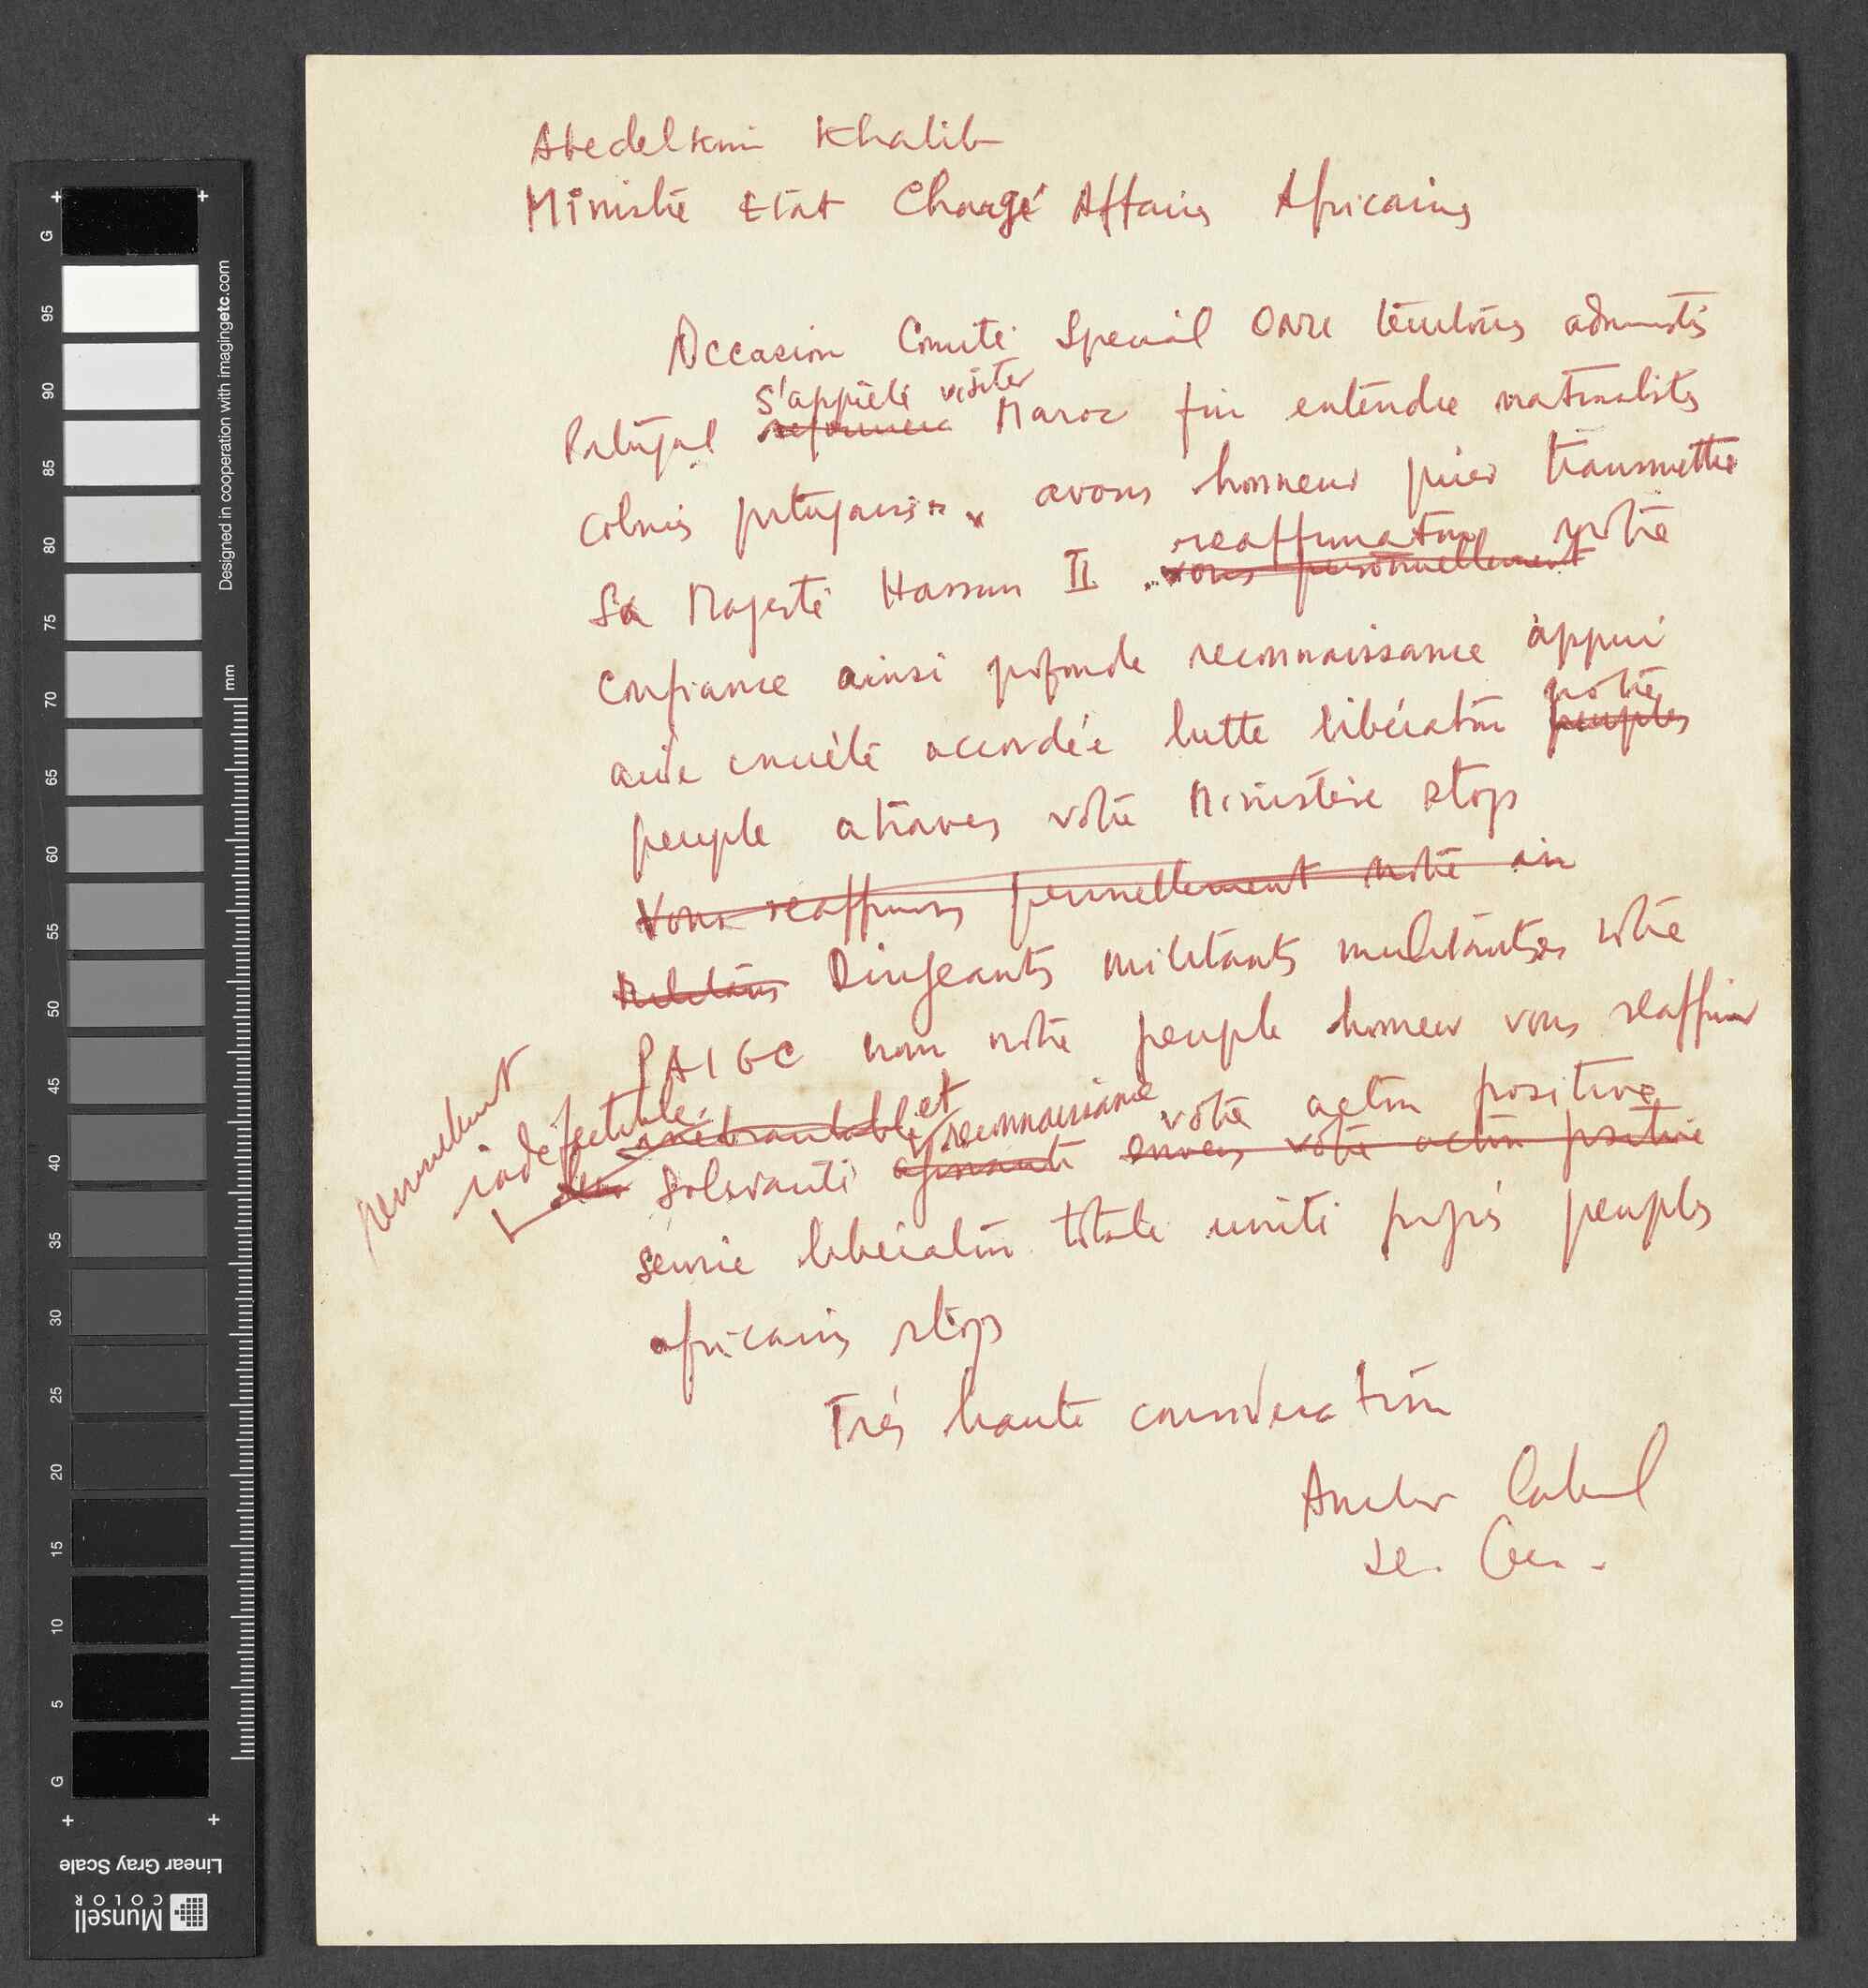 Abedelkrim Khatib
Ministre Etat Chargé Affaires Africaines
Occasion Comité Special ONU territoires administrés
s'apprête visiter
Portugal Maroc fin entendre nationalistes
colonies portugaises avons honneur prier transmettre
reaffirmation notre
Sa Majesté Hassan II vous personnellement
confiance ainsi profonde reconnaissance appui
notre
aide concrète accordée lutte libération peuples
peuple atraves votre Ministère stop
Vous reaffirmons personnellement notre
Militants Dirigeants militants militantes notre
PAIGC nom notre peuple honneur vous reaffirmer
personnellement
indéfectible inébranlable et reconnaissance votre action positive
solidarité agissante envers votre action positive
service libération totale unité progrés peuples
africains stop
Trés haute consideration
Amilcar Cabral
Se. Gen.
G
95
90
85
80
75
70
65
60
55
50
45
40
35
30
25
20
15
10
5
G
mm
Designed in cooperation with imagingetc.com
Linear Gray Scale
Munsell
COLOR